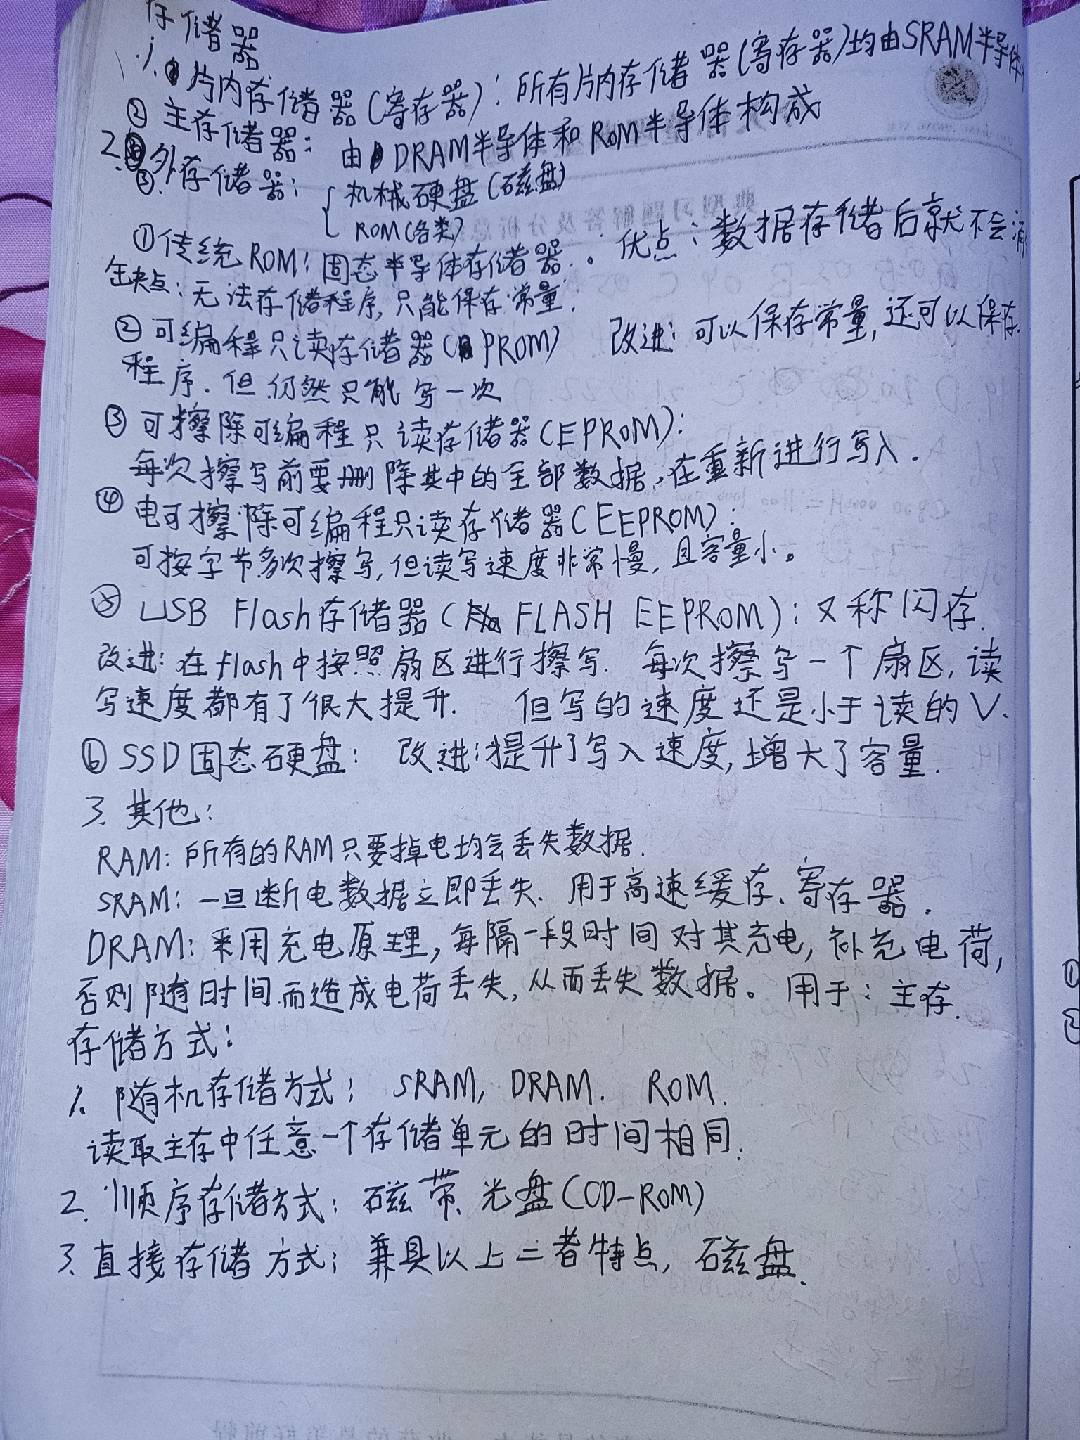 存储器
1. ① 片内存储器(寄存器): 所有片内存储器(寄存器)均由SRAM半导体
② 主存储器: 由DRAM半导体和ROM半导体构成
2. ③ 外存储器: { 机械硬盘(磁盘)
ROM(各类)
①传统ROM: 固态半导体存储器. 优点: 数据存储后就不会
缺点: 无法存储程序, 只能保存常量.
② 可编程只读存储器(PROM) 改进: 可以保存常量, 还可以保存
程序. 但仍然只能写一次
③ 可擦除可编程只读存储器(EPROM):
每次擦写前要删除其中的全部数据, 在重新进行写入.
④ 电可擦除可编程只读存储器(EEPROM):
可按字节多次擦写, 但读写速度非常慢, 且容量小。
⑤ USB Flash存储器(FLASH EEPROM): 又称闪存.
改进: 在flash中按照扇区进行擦写. 每次擦写一个扇区, 读
写速度都有了很大提升. 但写的速度还是小于读的V.
⑥ SSD固态硬盘: 改进: 提升了写入速度, 增大了容量.
3. 其他:
RAM: 所有的RAM只要掉电均会丢失数据.
SRAM: 一旦断电数据立即丢失. 用于高速缓存、寄存器.
DRAM: 采用充电原理, 每隔一段时间对其充电, 补充电荷,
否则随时间而造成电荷丢失, 从而丢失数据。用于: 主存.
存储方式:
1. 随机存储方式: SRAM, DRAM. ROM.
读取主存中任意一个存储单元的时间相同.
2. 顺序存储方式: 磁带、光盘(CD-ROM)
3. 直接存储方式: 兼具以上二者特点, 磁盘.